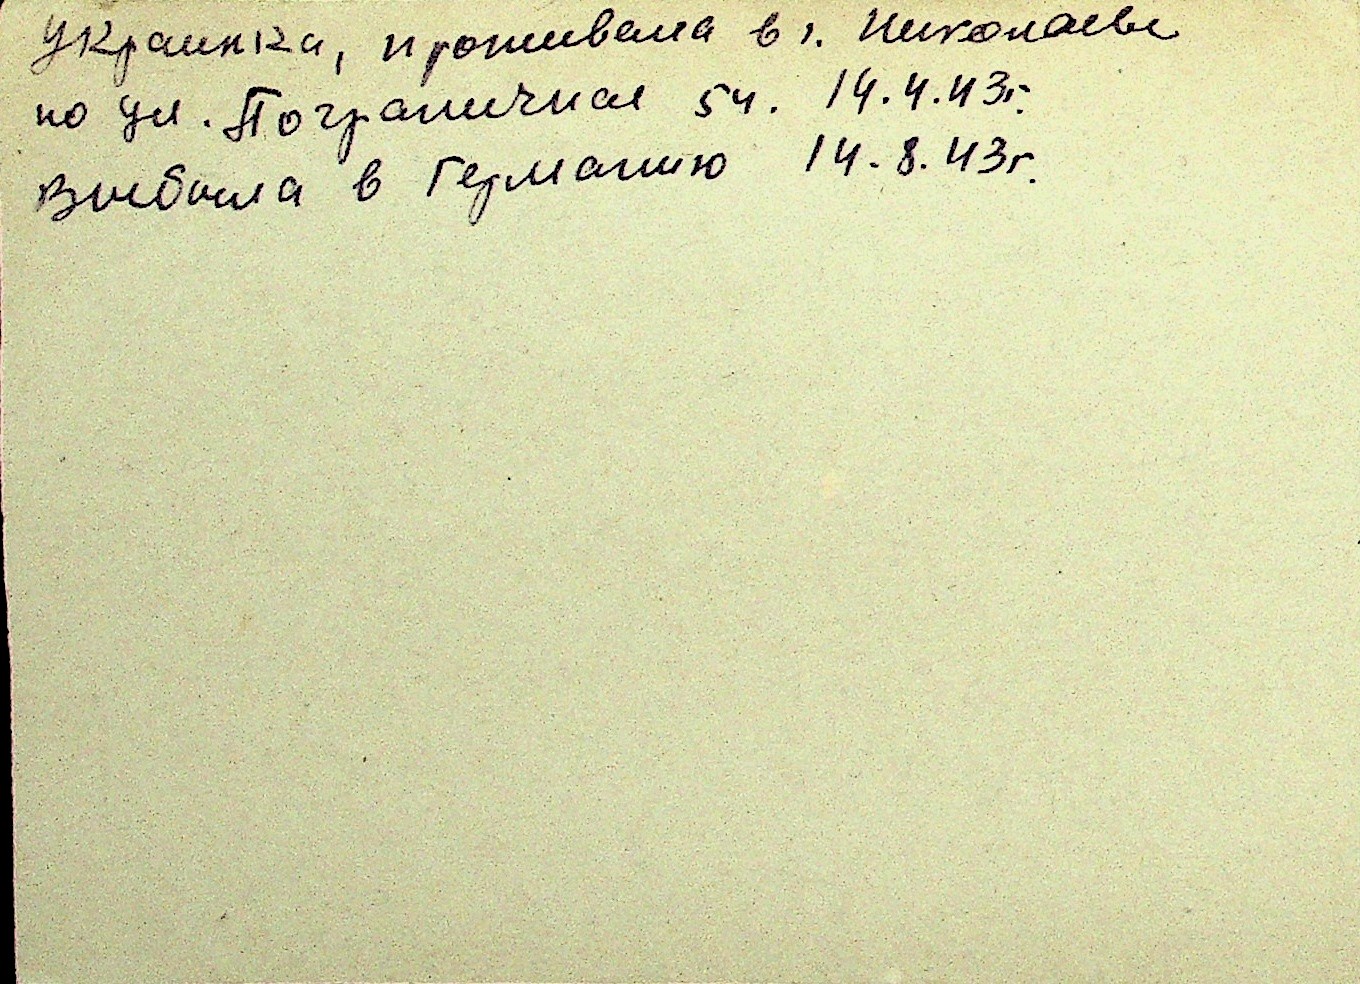 Украинка, проживала в г. Николаеве
по ул. Пограничная 54. 14.4.43г.
Выбыла в Германию 14.8.43г.